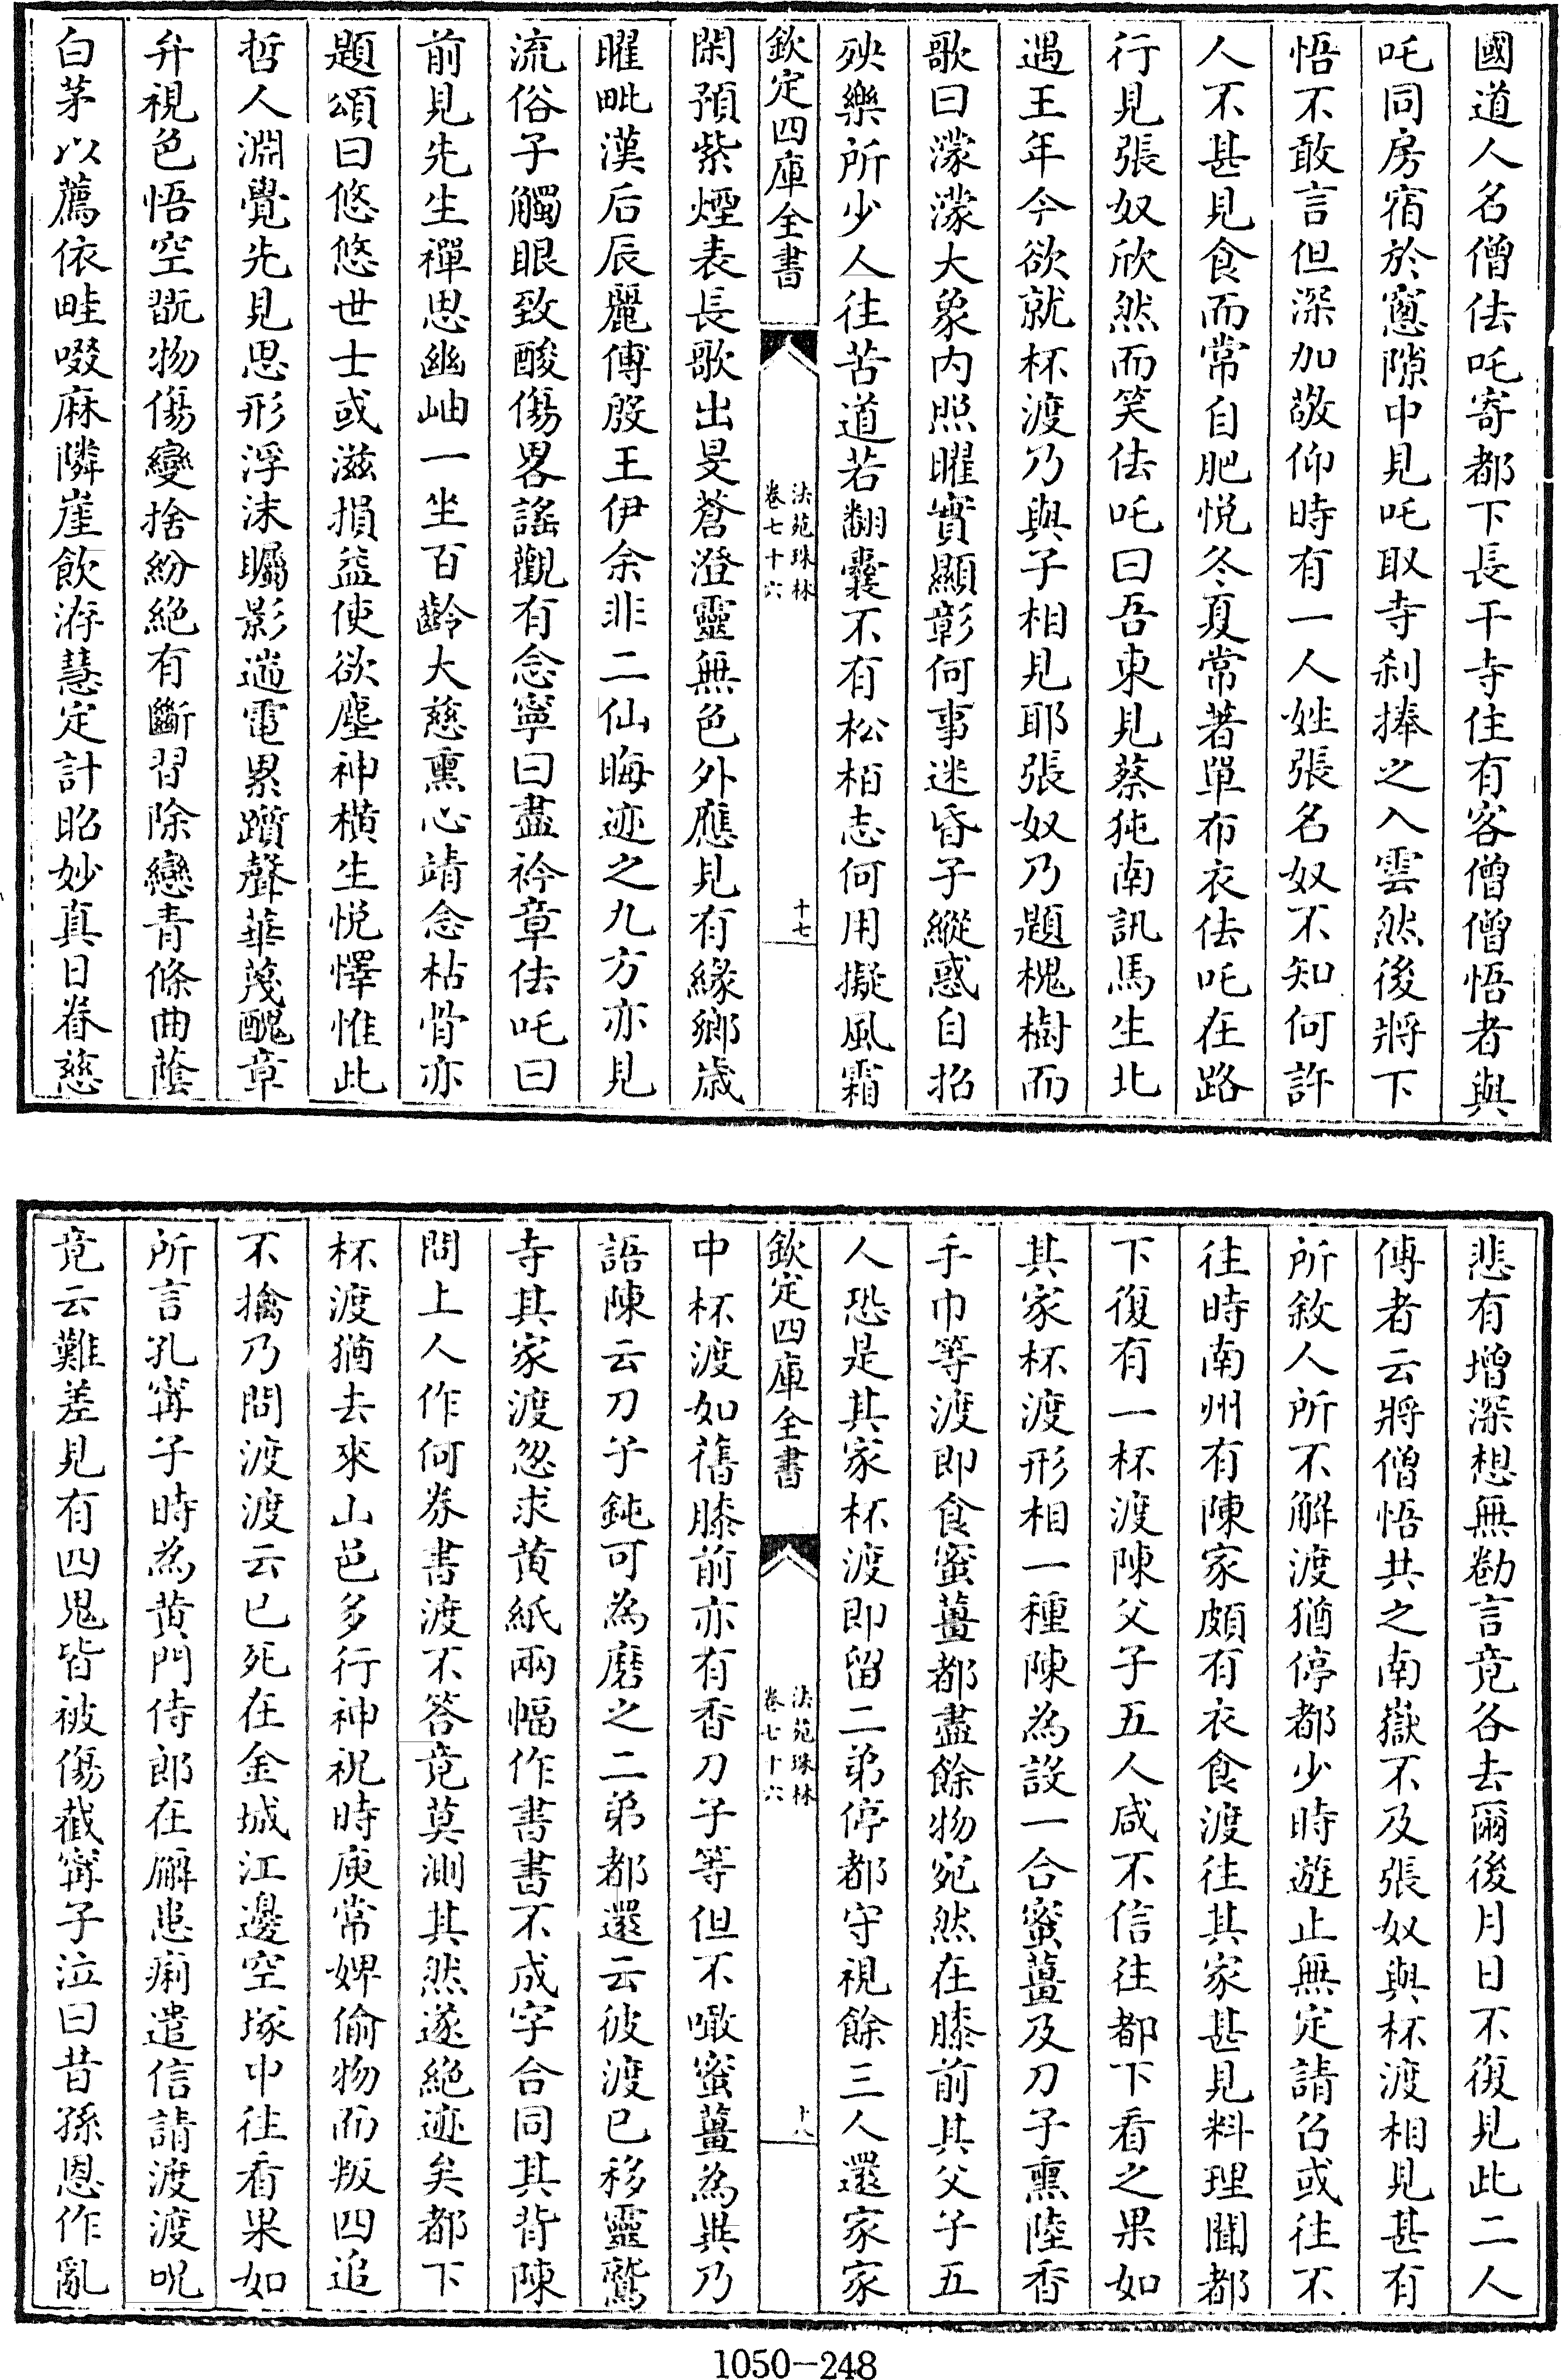 國道人名僧佉吒寄都下長干寺住有客僧僧悟者與
吒同房宿於窻隙中見吒取寺刹捧之入雲然後將下
悟不敢言但深加敬仰時有一人姓張名奴不知何許
人不甚見食而常自肥悦冬夏常著單布衣佉吒在路
行見張奴欣然而笑佉吒曰吾東見蔡㹠南訊馬生北
遇王年今欲就杯渡乃與子相見耶張奴乃題槐樹而
歌曰濛濛大象内照曜實顯彰何事迷昏子縱惑自招
殃樂所少人往苦道若翻囊不有松栢志何用擬風霜
欽定四庫全書
法苑珠林
卷七十六
十七
閑預紫煙表長歌出旻蒼澄靈無色外應見有緣鄉歳
曜毗漢后辰麗傅殷王伊余非二仙晦迹之九方亦見
流俗子觸眼致酸傷畧謠觀有念寧曰盡衿章佉吒曰
前見先生禪思幽岫一坐百齡大慈熏心靖念枯骨亦
題頌曰悠悠世士或滋損益使欲塵神横生悦懌惟此
哲人淵覺先見思形浮沫矚影遄電累躓聲華蔑醜章
弁視色悟空翫物傷變捨紛絶有斷習除戀青條曲蔭
白茅以薦依畦啜麻隣崖飲洊慧定計昭妙真日眷慈
悲有增深想無勌言竟各去爾後月日不復見此二人
傳者云將僧悟共之南嶽不及張奴與杯渡相見甚有
所敘人所不解渡猶停都少時遊止無定請召或往不
往時南州有陳家頗有衣食渡往其家甚見料理聞都
下復有一杯渡陳父子五人咸不信往都下看之果如
其家杯渡形相一種陳為設一合蜜薑及刀子熏陸香
手巾等渡即食蜜薑都盡餘物宛然在膝前其父子五
人恐是其家杯渡即留二弟停都守視餘三人還家家
欽定四庫全書
法苑珠林
卷七十六
十八
中杯渡如舊膝前亦有香刀子等但不噉蜜薑為異乃
語陳云刀子鈍可為磨之二弟都還云彼渡已移靈鷲
寺其家渡忽求黄紙兩幅作書書不成字合同其背陳
問上人作何劵書渡不答竟莫測其然遂絶迹矣都下
杯渡猶去來山邑多行神祝時庾常婢偷物而叛四追
不擒乃問渡渡云已死在金城江邊空塚中往看果如
所言孔寗子時為黄門侍郎在廨患痢遣信請渡渡呪
竟云難差見有四鬼皆被傷截寗子泣曰昔孫恩作亂
1050-248